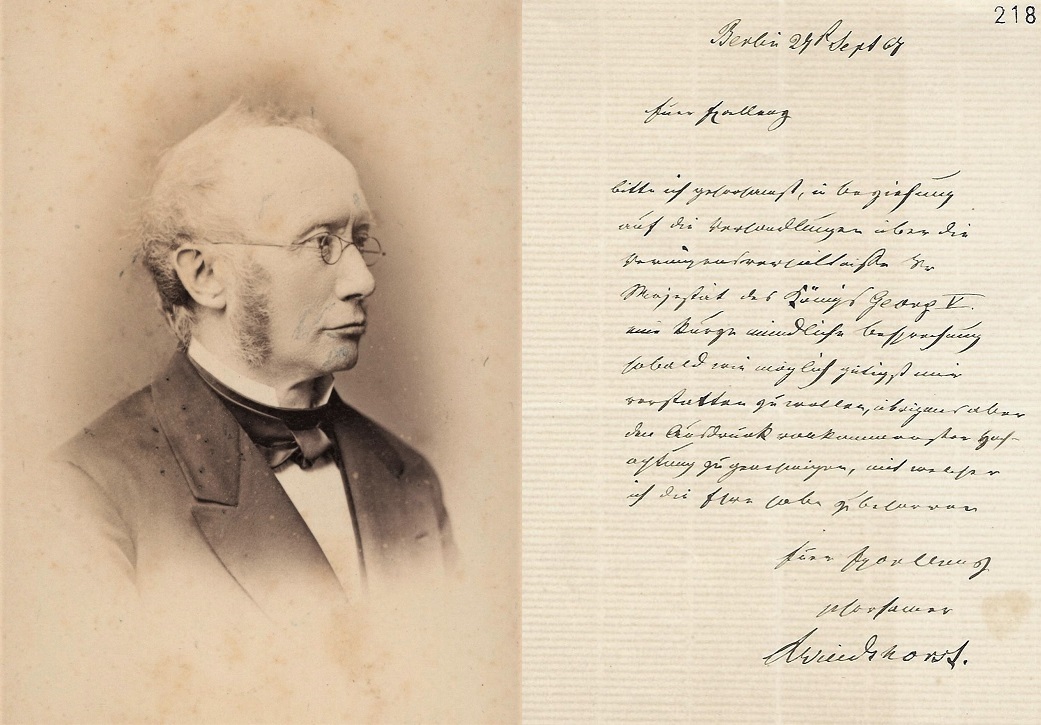 218
Berlin 27 Sept 67
Euer Excellenz
bitte ich gehorsamst, in Beziehung
auf die Verhandlungen über die
Vermögensverhältnisse Sr
Majestät des Königs Georg V.
eine kurze mündliche Besprechung
sobald wie möglich gütigst mir
verstatten zu wollen, übrigens aber
den Ausdruck vollkommenster Hoch-
achtung zu genehmigen, mit welcher
ich die Ehre habe zu beharren
Euer Excellenz
gehorsamer
Windthorst.